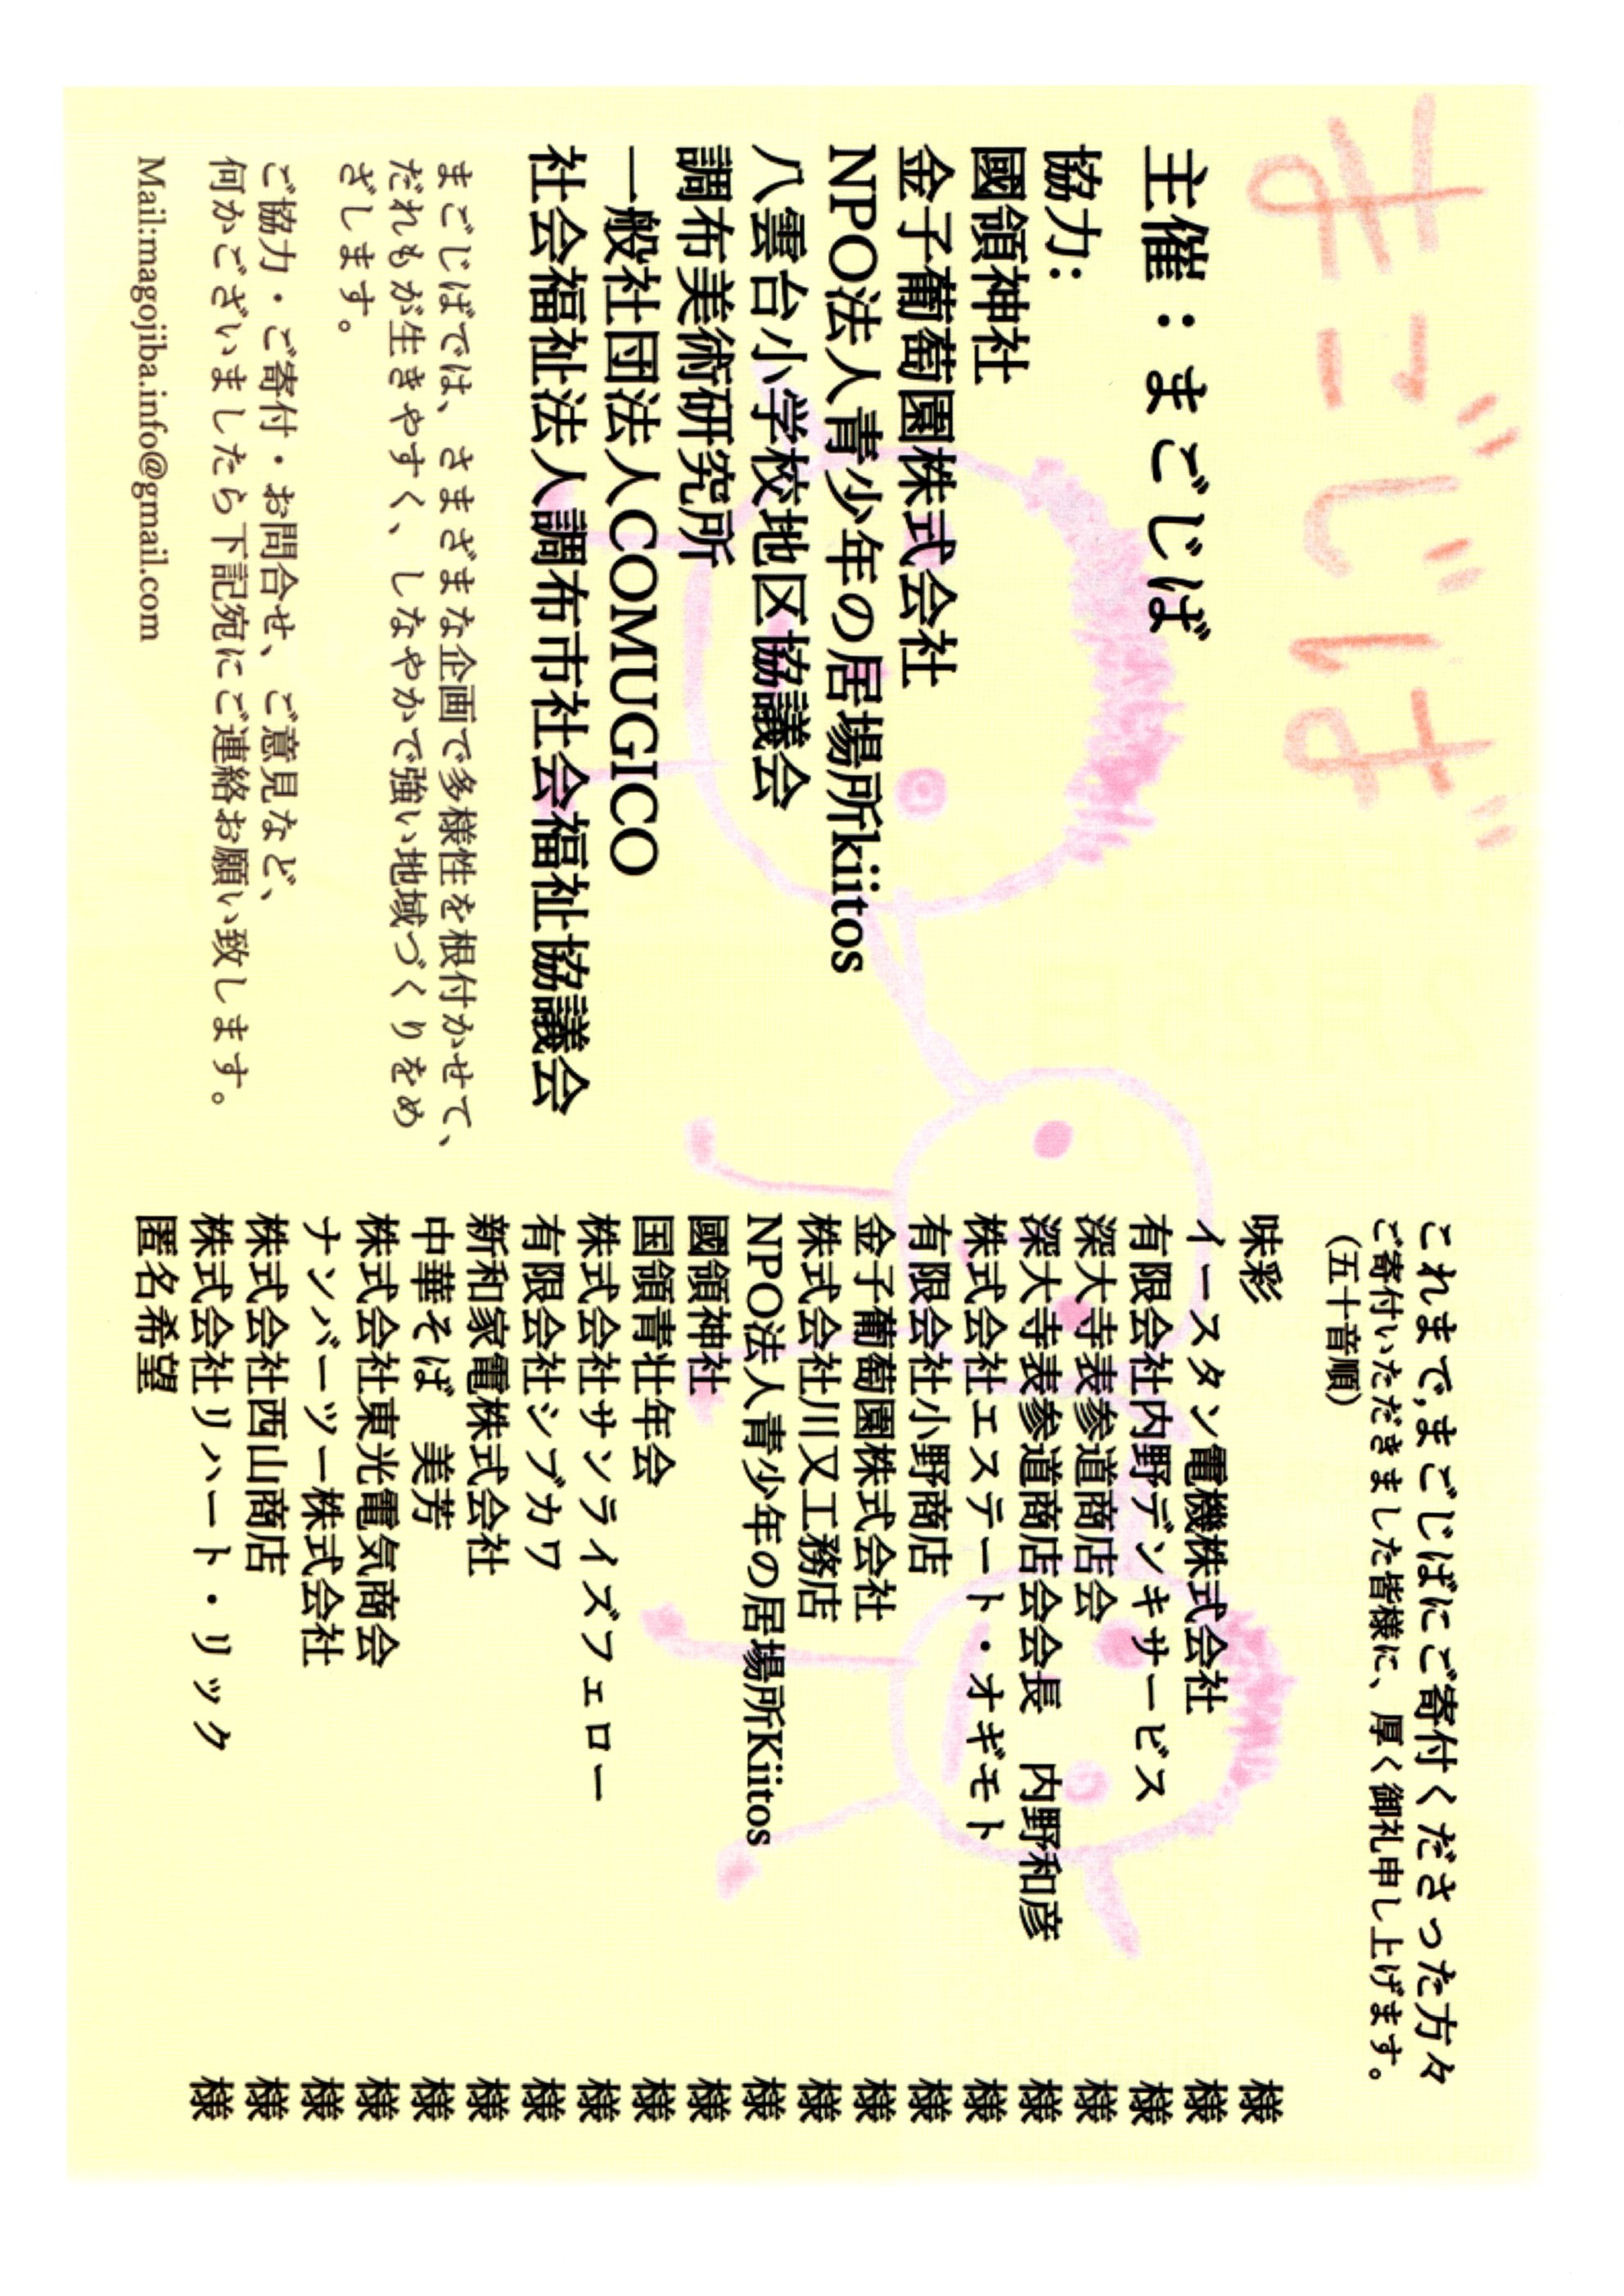 まごじば
主催：まごじば
協力：
國領神社
金子葡萄園株式会社
NPO法人青少年の居場所kiitos
八雲台小学校地区協議会
調布美術研究所
一般社団法人COMUGICO
社会福祉法人調布市社会福祉協議会
まごじばでは、さまざまな企画で多様性を根付かせて、
だれもが生きやすく、しなやかで強い地域づくりをめ
ざします。
ご協力・ご寄付・お問合せ、ご意見など、
何かございましたら下記宛にご連絡お願い致します。
Mail:magojiba.info@gmail.com
これまで,まごじばにご寄付くださった方々
ご寄付いただきました皆様に、厚く御礼申し上げます。
（五十音順）
味彩 様
イースタン電機株式会社 様
有限会社内野デンキサービス 様
深大寺表参道商店会 様
深大寺表参道商店会会長　内野和彦 様
株式会社エステート・オギモト 様
有限会社小野商店 様
金子葡萄園株式会社 様
株式会社川又工務店 様
NPO法人青少年の居場所Kiitos 様
國領神社 様
国領青壮年会 様
株式会社サンライズフェロー 様
有限会社シブカワ 様
新和家電株式会社 様
中華そば　美芳 様
株式会社東光電気商会 様
ナンバーツー株式会社 様
株式会社西山商店 様
株式会社リハート・リック 様
匿名希望